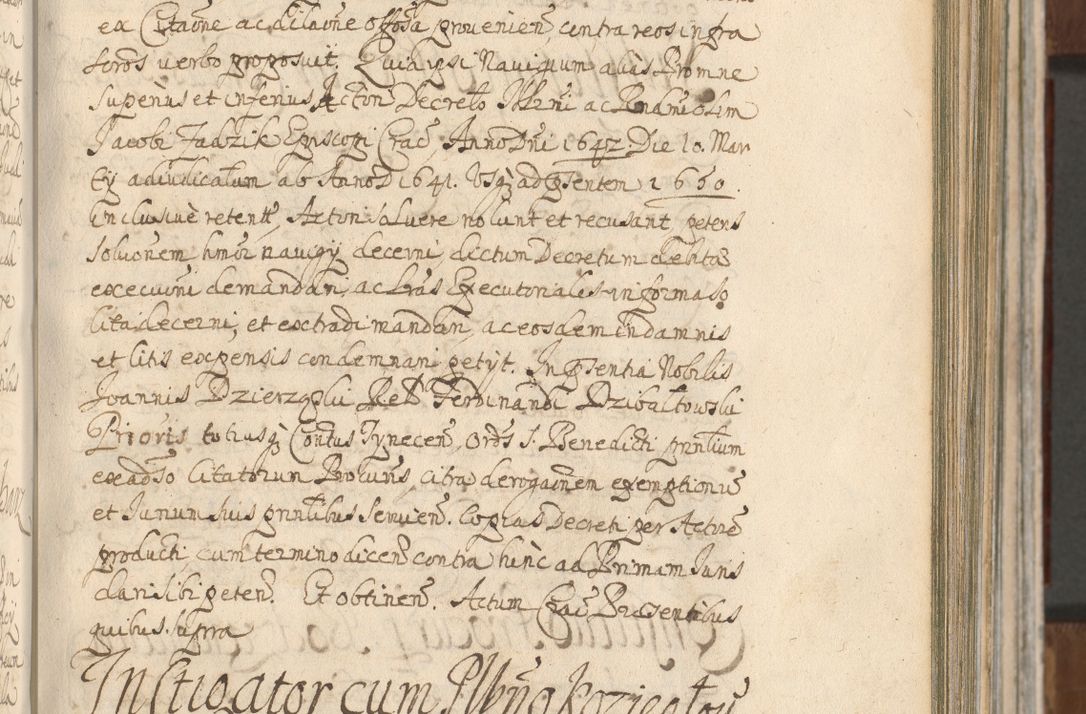 ex Citaõne ac dilaõne offõsa provenien̄, contra reos infra
scros verbo proposuit. Quia ipsi Navigium alias Promne
superius et inferius Acton Decreto Illrmi ac Rndmi olim
Jacobi Zadzik Episcopi Crac̄, Anno Dñi 1642 Die 10. Mar
tij adiudicatum ab Anno D 1641. Usq ad psentem 1650.
inclusive retent, Actori solvere nolunt et recusant, petens
solvonem hmõi navigij decerni, dictum Decretum debitæ
execuoni demandari, ac Lrãs Executoriales in forma so
lita decerni, et extradi mandari, ac eosdem in damnis
et litis expensis condemnari petijt. In psentia Nobilis
Joannis Dzierzgski Reld Ferdinandi Dzibaltowski
Prioris totiusq Contus Tynecen̄, Ordis S. Benedicti prntium
ex adso Citatorum Procuris, citra derogaonem exemptionū
et Jurium suis prntibus servien̄. Copias Decreti per Actorē
producti, cum termino dicen̄ contra hinc ad Primam Juris
dari sibi peten̄. Et obtinen̄. Actum Crac̄ Præsentibus
quibus supra
Instigator cum